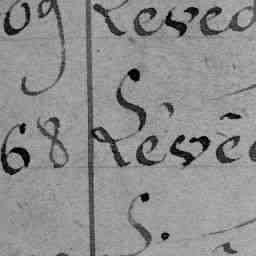 09 Leved
S.
68 Levē
S.